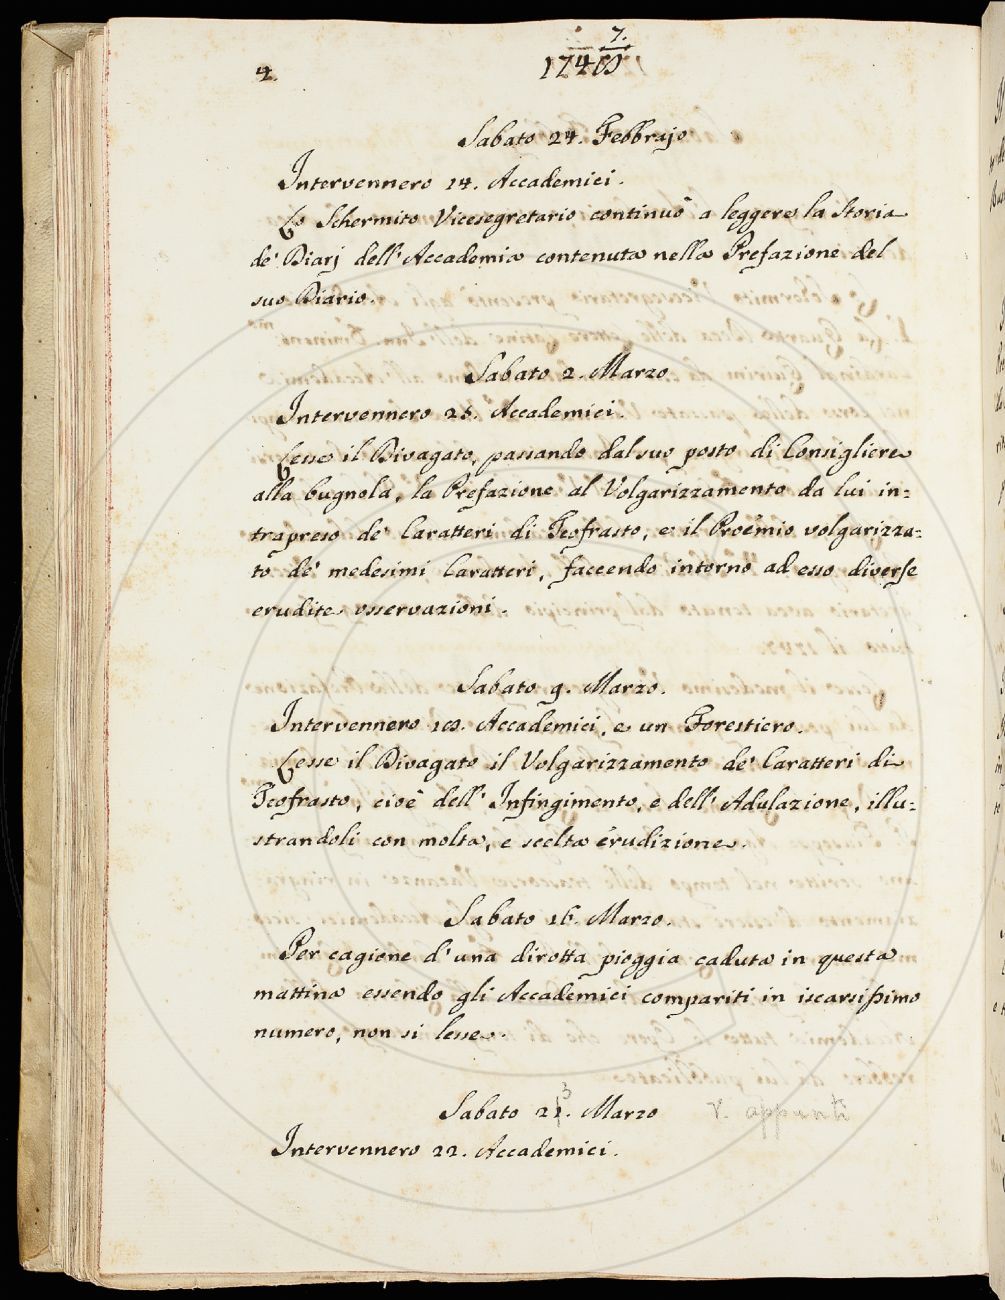 4.
7.
1748
Sabato 24. Febbrajo
Intervennero 14. Accademici.
Lo Schermito Vicesegretario continuò a leggere la Storia
de' Diarj dell'Accademia contenuta nella Prefazione del
suo Diario.
Sabato 2. Marzo
Intervennero 25. Accademici.
Lesse il Divagato, passando dal suo posto di Consigliere
alla bugnola, la Prefazione al Volgarizzamento da lui in=
trapreso de' Caratteri di Teofrasto, e il Proemio volgarizza=
to de' medesimi Caratteri, faccendo intorno ad esso diverse
erudite osservazioni.
Sabato 9. Marzo.
Intervennero Accademici, e un Forestiero.
Lesse il Divagato il Volgarizzamento de' Caratteri di
Teofrasto, cioè dell'Infingimento, e dell'Adulazione, illu=
strandoli con molta, e scelta erudizione.
Sabato 16. Marzo.
Per cagione d'una dirotta pioggia caduta in questa
mattina essendo gli Accademici compariti in iscarsissimo
numero, non si lesse.
3
Sabato 21. Marzo v. appunti
Intervennero 22. Accademici.